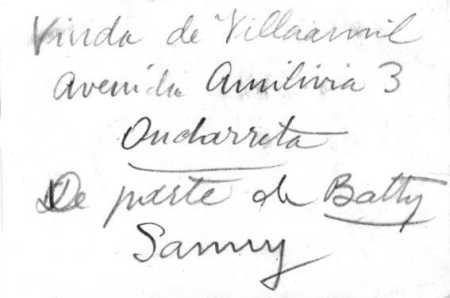 Viuda de Villaamil
Avenida Amilivia 3
Ondarreta
De parte de Batty
Samuy